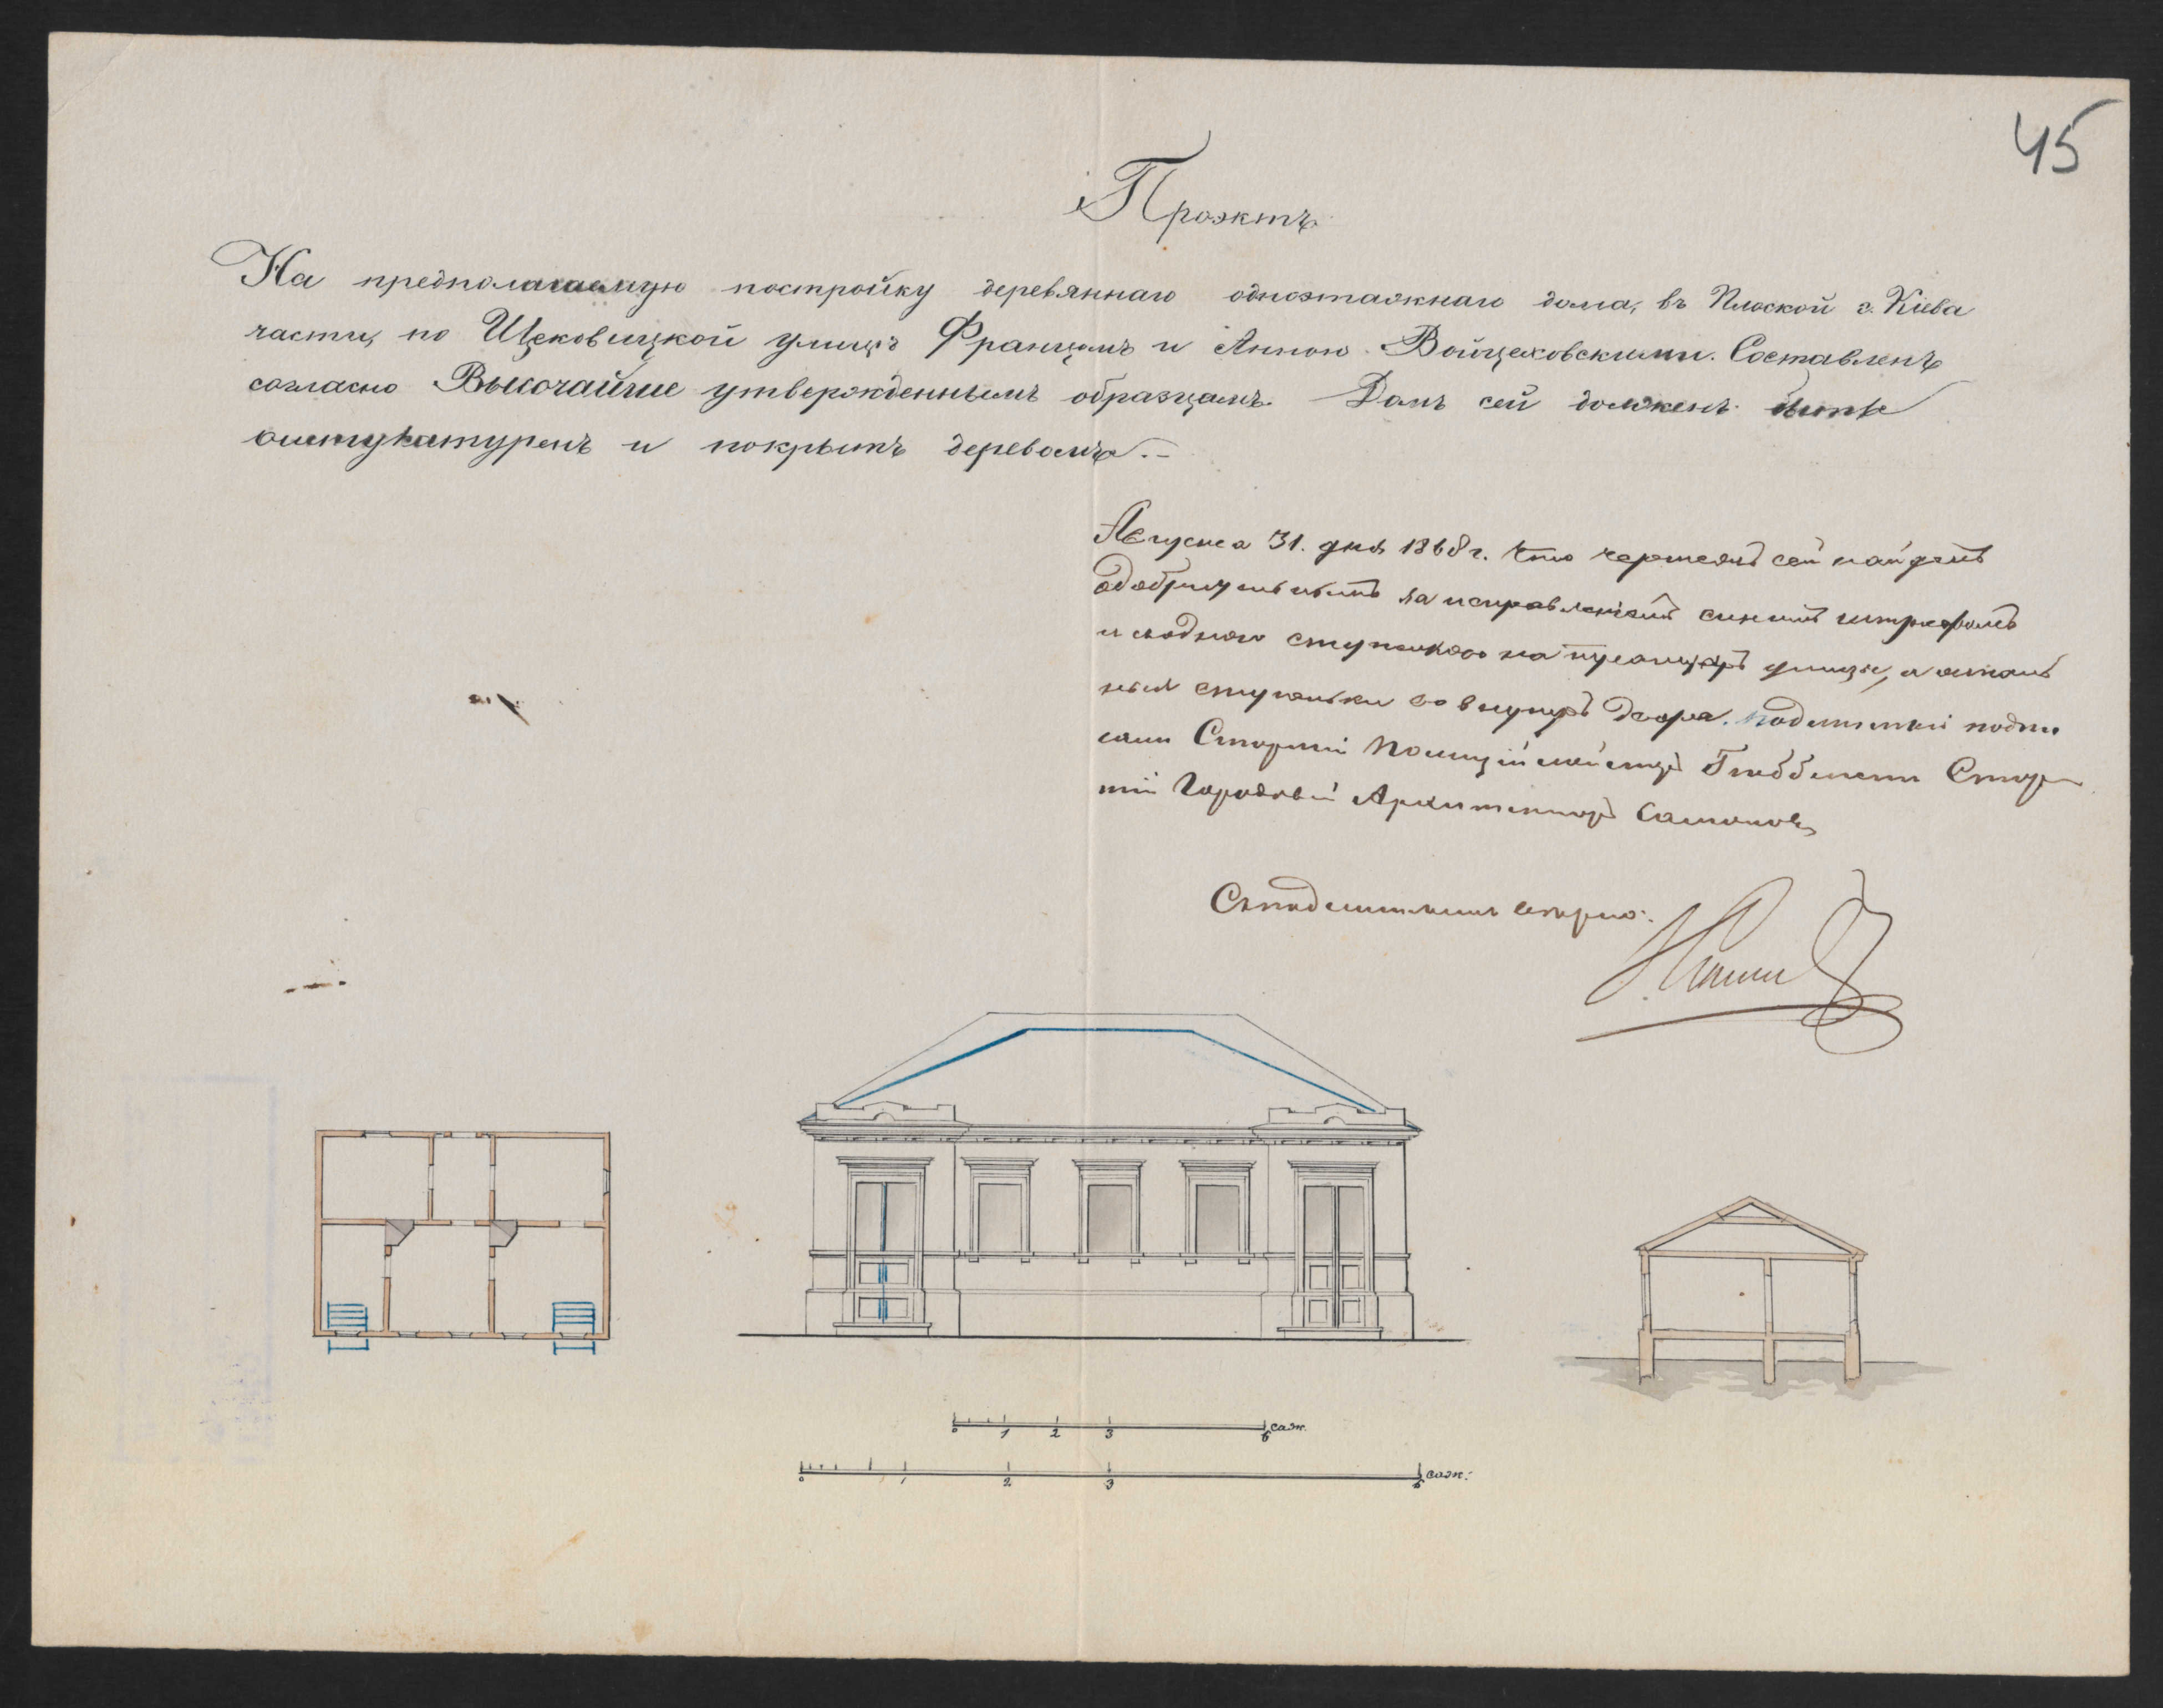 45
Проэктъ
На предполагаемую постройку деревяннаго одноэтажнаго дома, въ Плоской г. Кіева
части, по Щековицкой улицѣ Францомъ и Анною Войцеховскими. Составленъ
согласно Высочайше утвержденнымъ образцамъ. Домъ сей долженъ быть
оштукатуренъ и покрытъ деревомъ.–
Августа 31. дня 1868 г. Что чертежъ сей найденъ
исправленіемъ синимъ штрихомъ
и одною ступенькою на улицѣ, а
ныя ступеньки во внутрь двора. Подлинный подпи
сали Старшій Полиціймейстеръ Стар
шій Городовой Архитекторъ
Съ подлиннымъ вѣрно:
0 1 2 3 6 саж.
0 1 2 3 6 саж.